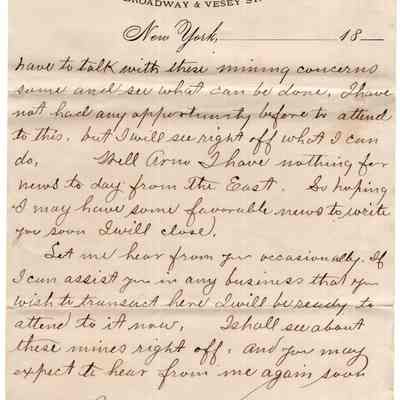 BROADWAY & VESEY ST
New York, 18
have to talk with these mining concerns
some and see what can be done. I have
not had any opportunity before to attend
to this. but I will see right off what I can
do. Well Arno I have nothing for
news to day from the East. So hoping
I may have some favorable news to write
you soon I will close.
Let me hear from you occasionally. If
I can assist you in any business that you
wish to transact here I will be ready to
attend to it now. I shall see about
these mines right off. and you may
expect to hear from me again soon